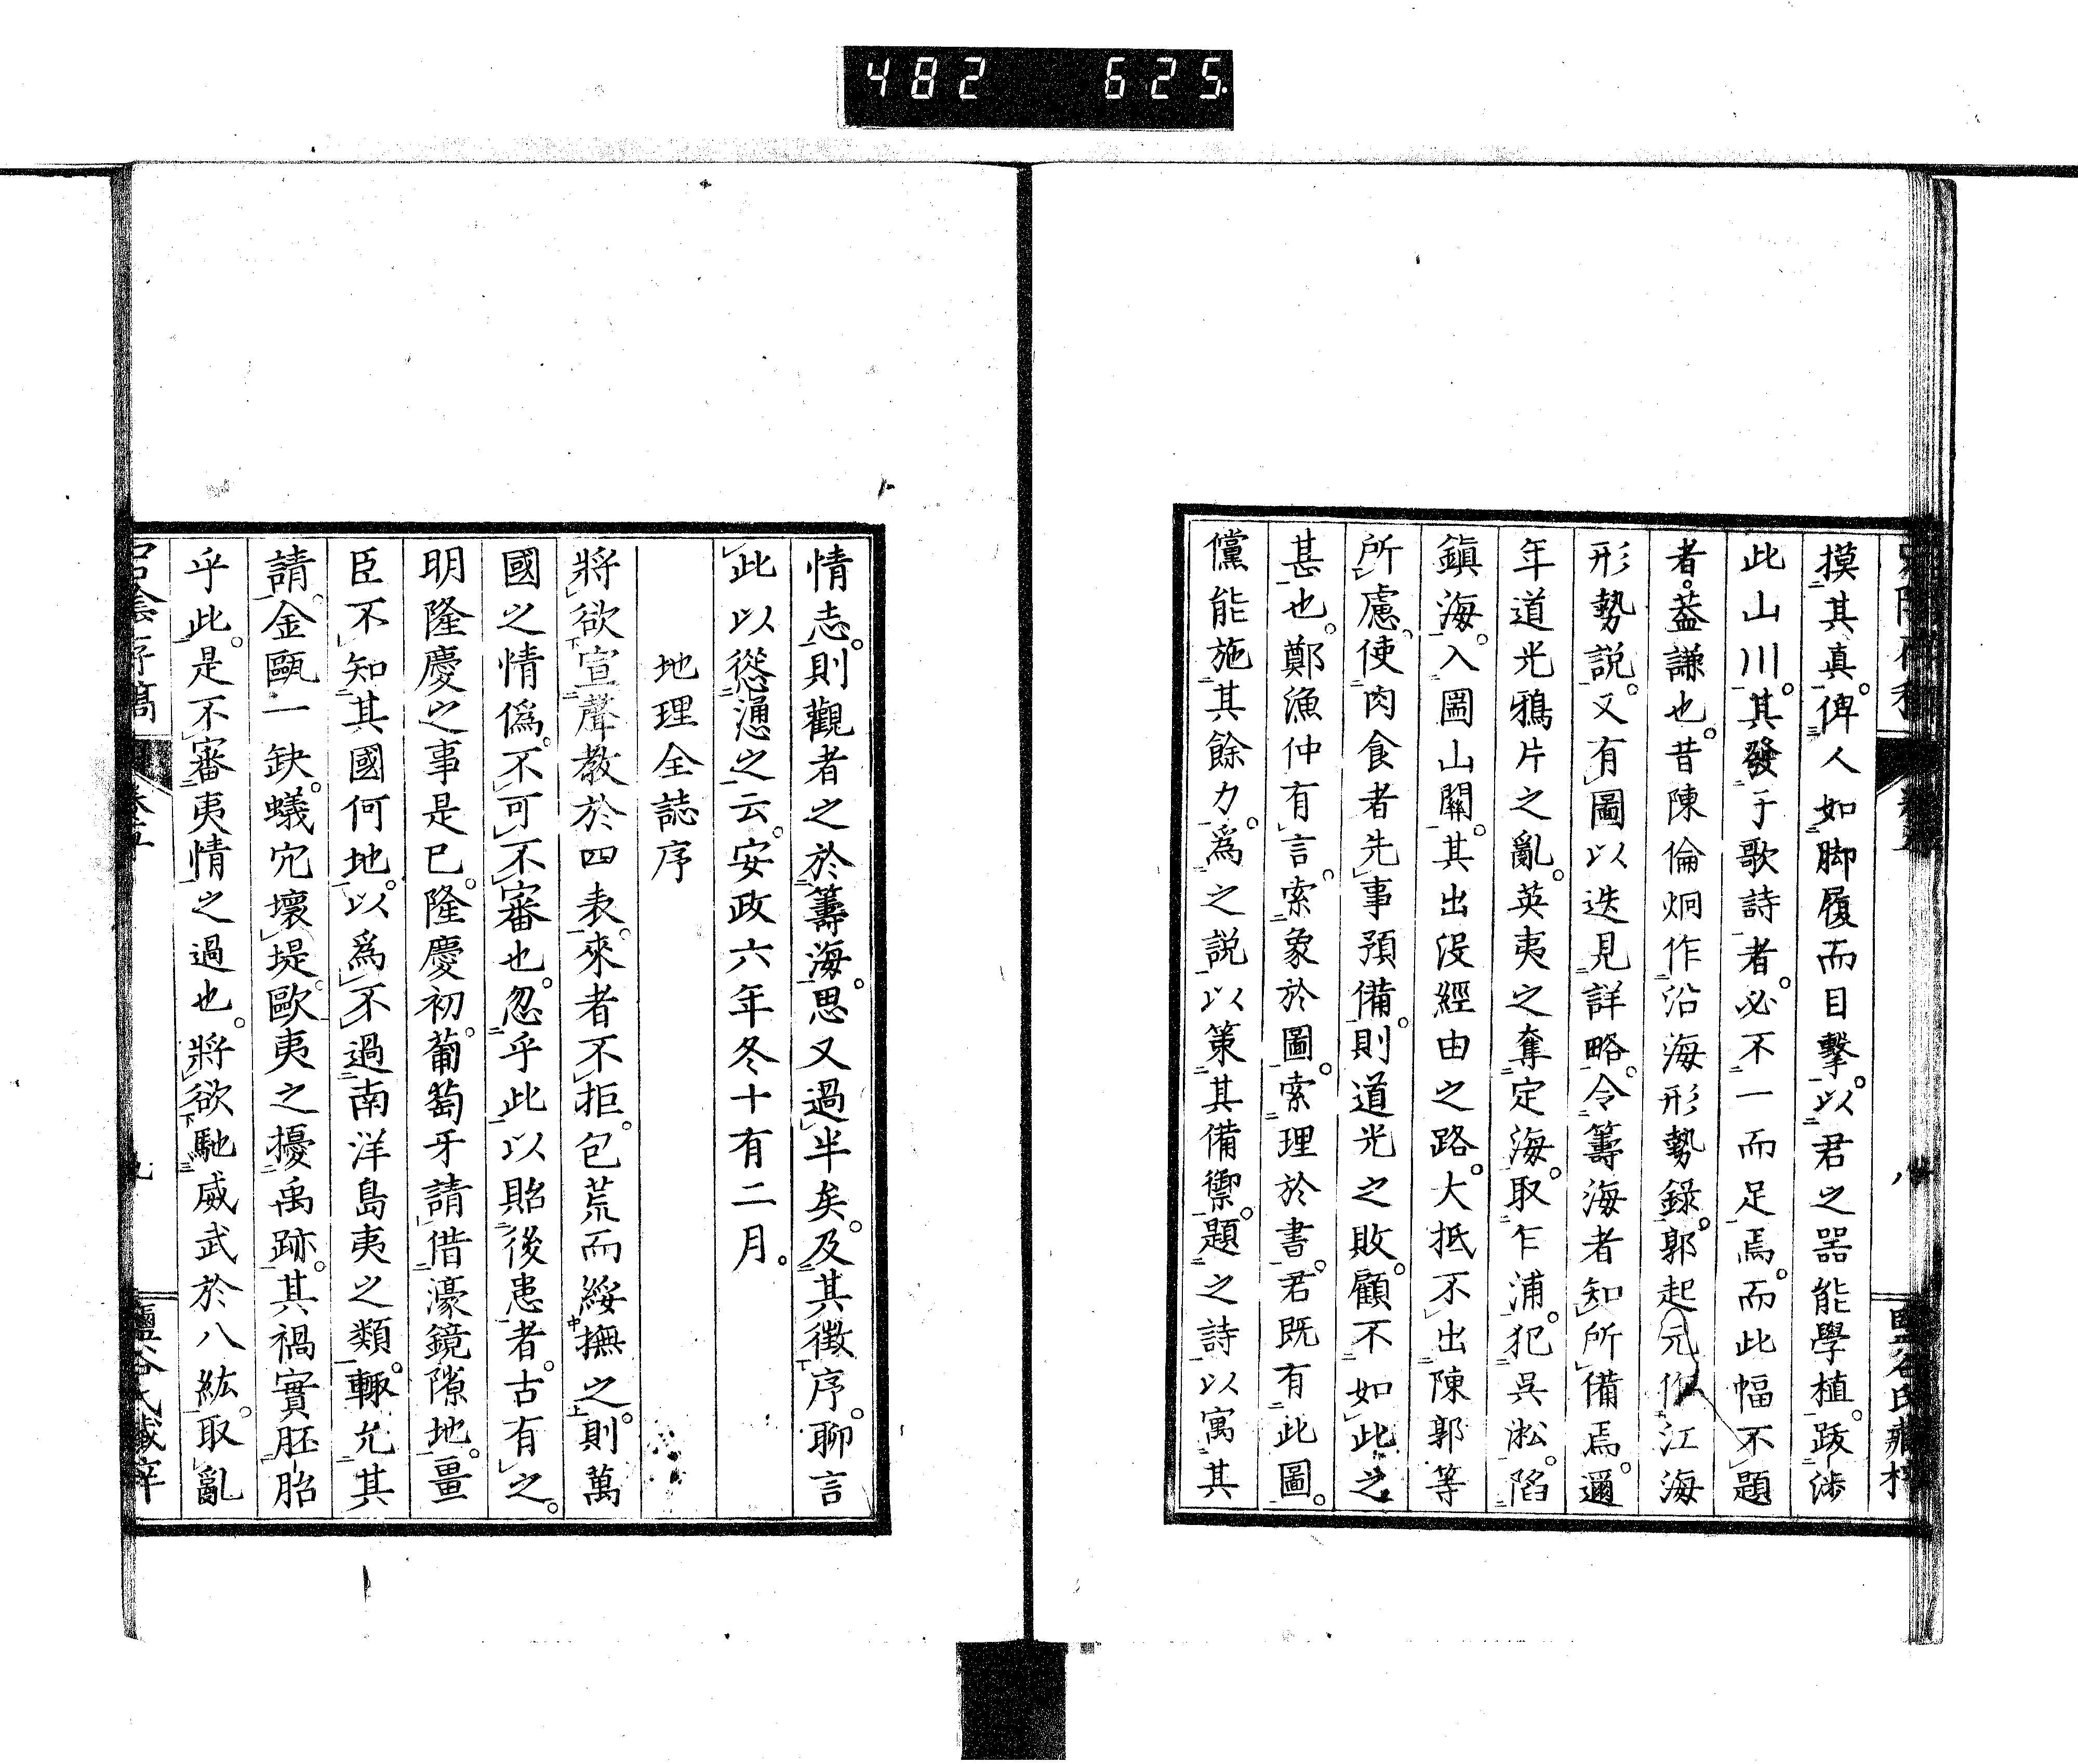 482 625
摸其真。俾人如脚履而目擊。以君之器能學植。跋渉
此山川。其發于歌詩者。必不一而足焉。而此幅不題
者。蓋謙也。昔陳倫炯作沿海形勢錄。郭起元作江海
形勢説。又有圖以迭見詳略。令籌海者知所備焉。邇
年道光鴉片之亂。英夷之奪定海。取乍浦。犯呉淞。陷
鎮海。入圌山關。其出没經由之路。大抵不出陳郭等
所慮。使肉食者先事預備。則道光之敗。顧不如此之
甚也。鄭漁仲有言。索象於圖。索理於書。君既有此圖。
儻能施其餘力。爲之説以策其備禦。題之詩以寓其
情志。則觀者之於籌海。思又過半矣。及其徴序。聊言
此以慫慂之云。安政六年冬十有二月。
地理全誌序
將欲宣聲教於四表。來者不拒。包荒而綏撫之。則萬
國之情僞。不可不審也。忽乎此以貽後患者。古有之。
明隆慶之事是已。隆慶初。葡萄牙請借濠鏡隙地。畺
臣不知其國何地。以爲不過南洋島夷之類。輙允其
請。金甌一缺。蟻宂壞堤。歐夷之擾禹跡。其禍實胚胎
乎此。是不審夷情之過也。將欲馳威武於八紘。取亂